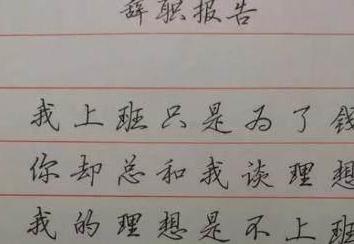 辞职报告
我上班只是为了钱
你却总和我谈理想
我的理想是不上班